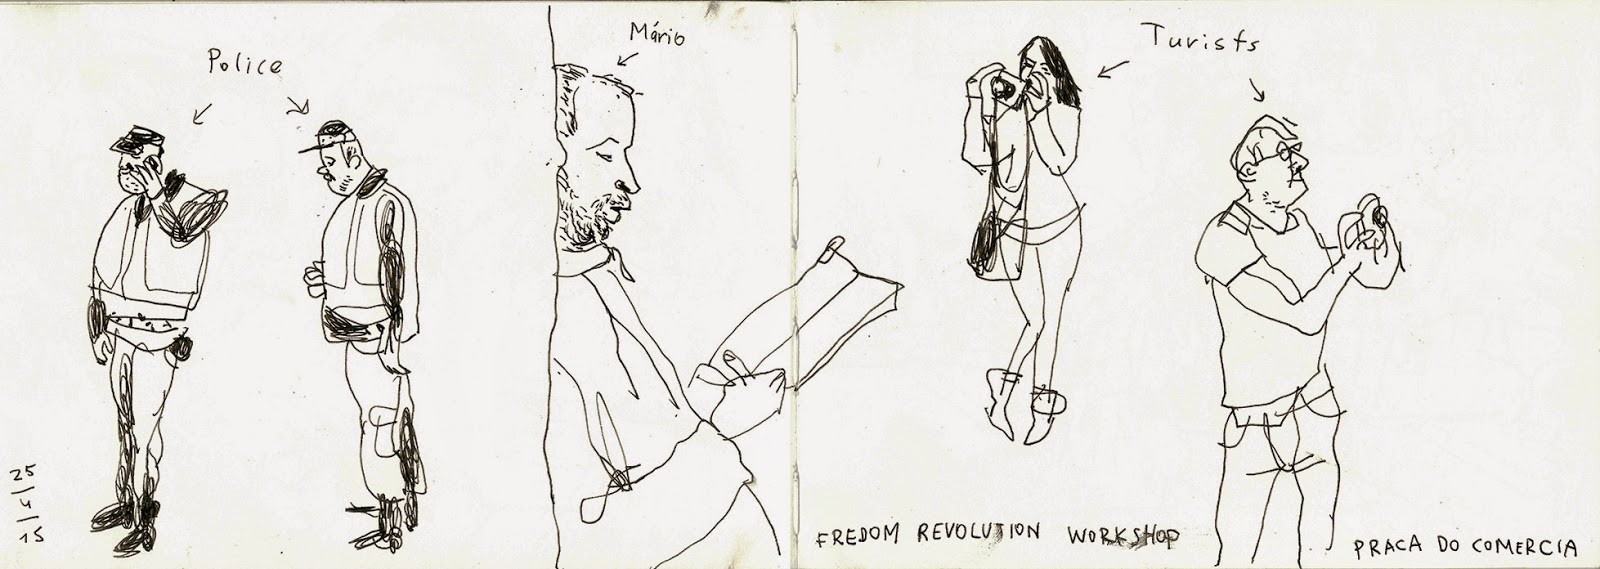 Police
Mário
Turists
25/4/15
FREDOM REVOLUTION WORKSHOP
PRACA DO COMERCIA